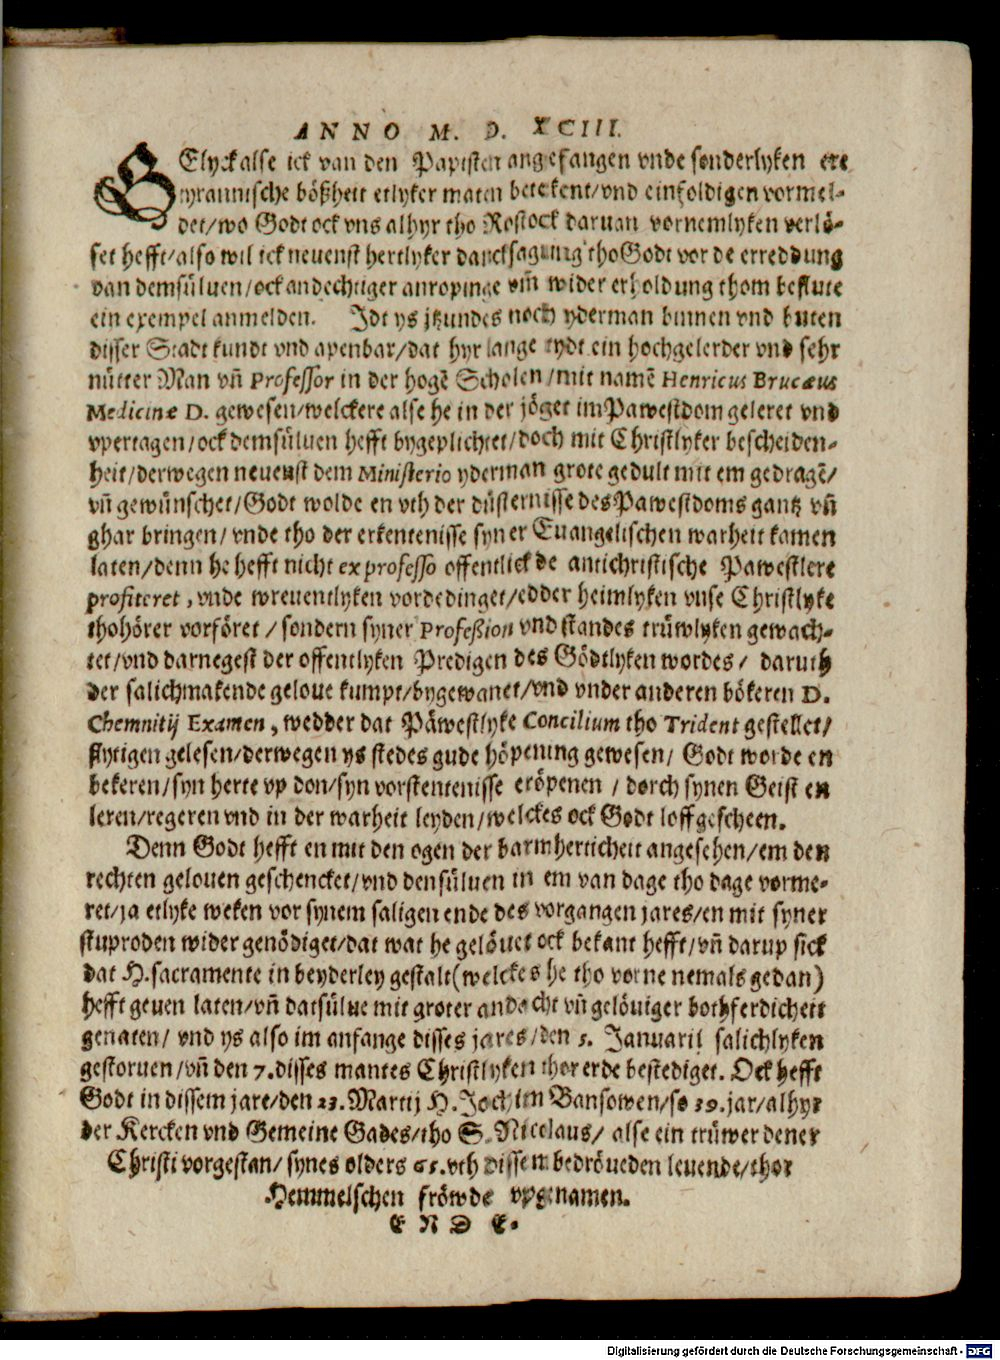 ANNO M. D. XCIII.
GElyck alse ick van den Papisten angefangen vnde sonderlyken ere
tyrannische bößheit etlyker maten betekent/vnd einfoldigen vormel-
det/wo Godt ock vns alhyr tho Rostock daruan vornemlyken verlö-
set hefft/also wil ick neuenst hertlyker dancksagung tho Godt vor de erreddung
van demsüluen/ock andechtiger anropinge vm̃ wider erholdung thom beslute
ein exempel anmelden. Idt ys jtzundes noch yderman binnen vnd buten
disser Stadt kundt vnd apenbar/dat hyr lange tydt ein hochgelerder vnd sehr
nütter Man vñ Professor in der hogẽ Scholen/mit namẽ Henricus Brucæus
Medicinæ D. gewesen/welckere alse he in der jöget im Pawestdom geleret vnd
vpertagen/ock demsüluen hefft bygeplichtet/doch mit Christlyker bescheiden-
heit/derwegen neuenst dem Ministerio yderman grote gedult mit em gedragẽ/
vñ gewünschet/Godt wolde en vth der düsternisse des Pawestdoms gantz vñ
ghar bringen/vnde tho der erkentenisse syner Euangelischen warheit kamen
laten/denn he hefft nicht ex professo offentlick de antichristische Pawestlere
profiteret, vnde wreuentlyken vordedinget/edder heimlyken vnse Christlyke
thohörer vorföret/sondern syner Profeßion vnd standes trüwlyken gewach-
tet/vnd darnegest der offentlyken Predigen des Gödtlyken wordes/ daruth
der salichmakende geloue kumpt/bygewanet/vnd vnder anderen bökeren D.
Chemnitij Examen, wedder dat Päwestlyke Concilium tho Trident gestellet/
flytigen gelesen/derwegen ys stedes gude höpening gewesen/ Godt worde en
bekeren/syn herte vp don/syn vorstentenisse eröpenen/dorch synen Geist en
leren/regeren vnd in der warheit leyden/welckes ock Godt loff gescheen.
Denn Godt hefft en mit den ogen der barmherticheit angesehen/em den
rechten gelouen geschencket/vnd densüluen in em van dage tho dage vorme-
ret/ja etlyke weken vor synem saligen ende des vorgangen jares/en mit syner
stuproden wider genödiget/dat wat he gelöuet ock bekant hefft/vñ darup sick
dat H. sacramente in beyderley gestalt(welckes he tho vorne nemals gedan)
hefft geuen laten/vñ datsülue mit groter andacht vñ gelöuiger bothferdicheit
genaten/ vnd ys also im anfange disses jares/den 5. Januarij salichlyken
gestoruen/vñ den 7. disses mantes Christlyken thor erde bestediget. Ock hefft
Godt in dissem jare/den 23. Martij H. Jochim Bansowen/so 39. jar/alhyr
der Kercken vnd Gemeine Gades/tho S. Nicolaus/ alse ein trüwer dener
Christi vorgestan/synes olders 65. vth dissem bedröueden leuende/thor
Hemmelschen fröwde vpgenamen.
ENDE.
Digitalisierung gefördert durch die Deutsche Forschungsgemeinschaft - DFG